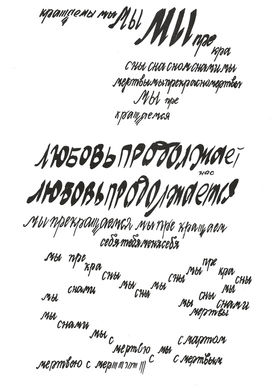 кращаемы мы МЫ МЫ пре
кра
сны сна сном снами мы
мертвы мы прекрасно мертвы
МЫ пре
кращаемся
ЛЮБОВЬ ПРОДОЛЖАЕТ
нас
ЛЮБОВЬ ПРОДОЛЖАЕТСЯ
мы прекращаемся мы прекращаем
себя тебя меня себя
мы пре мы пре
кра мы мы кра
сны сны сны
мы снами мы сны мы мы снами
мы мертвы
снами
мы с мы с мартом
мертвою с мы с мертвым
мертвою с